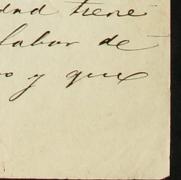 dad tiene
labor de
o y que